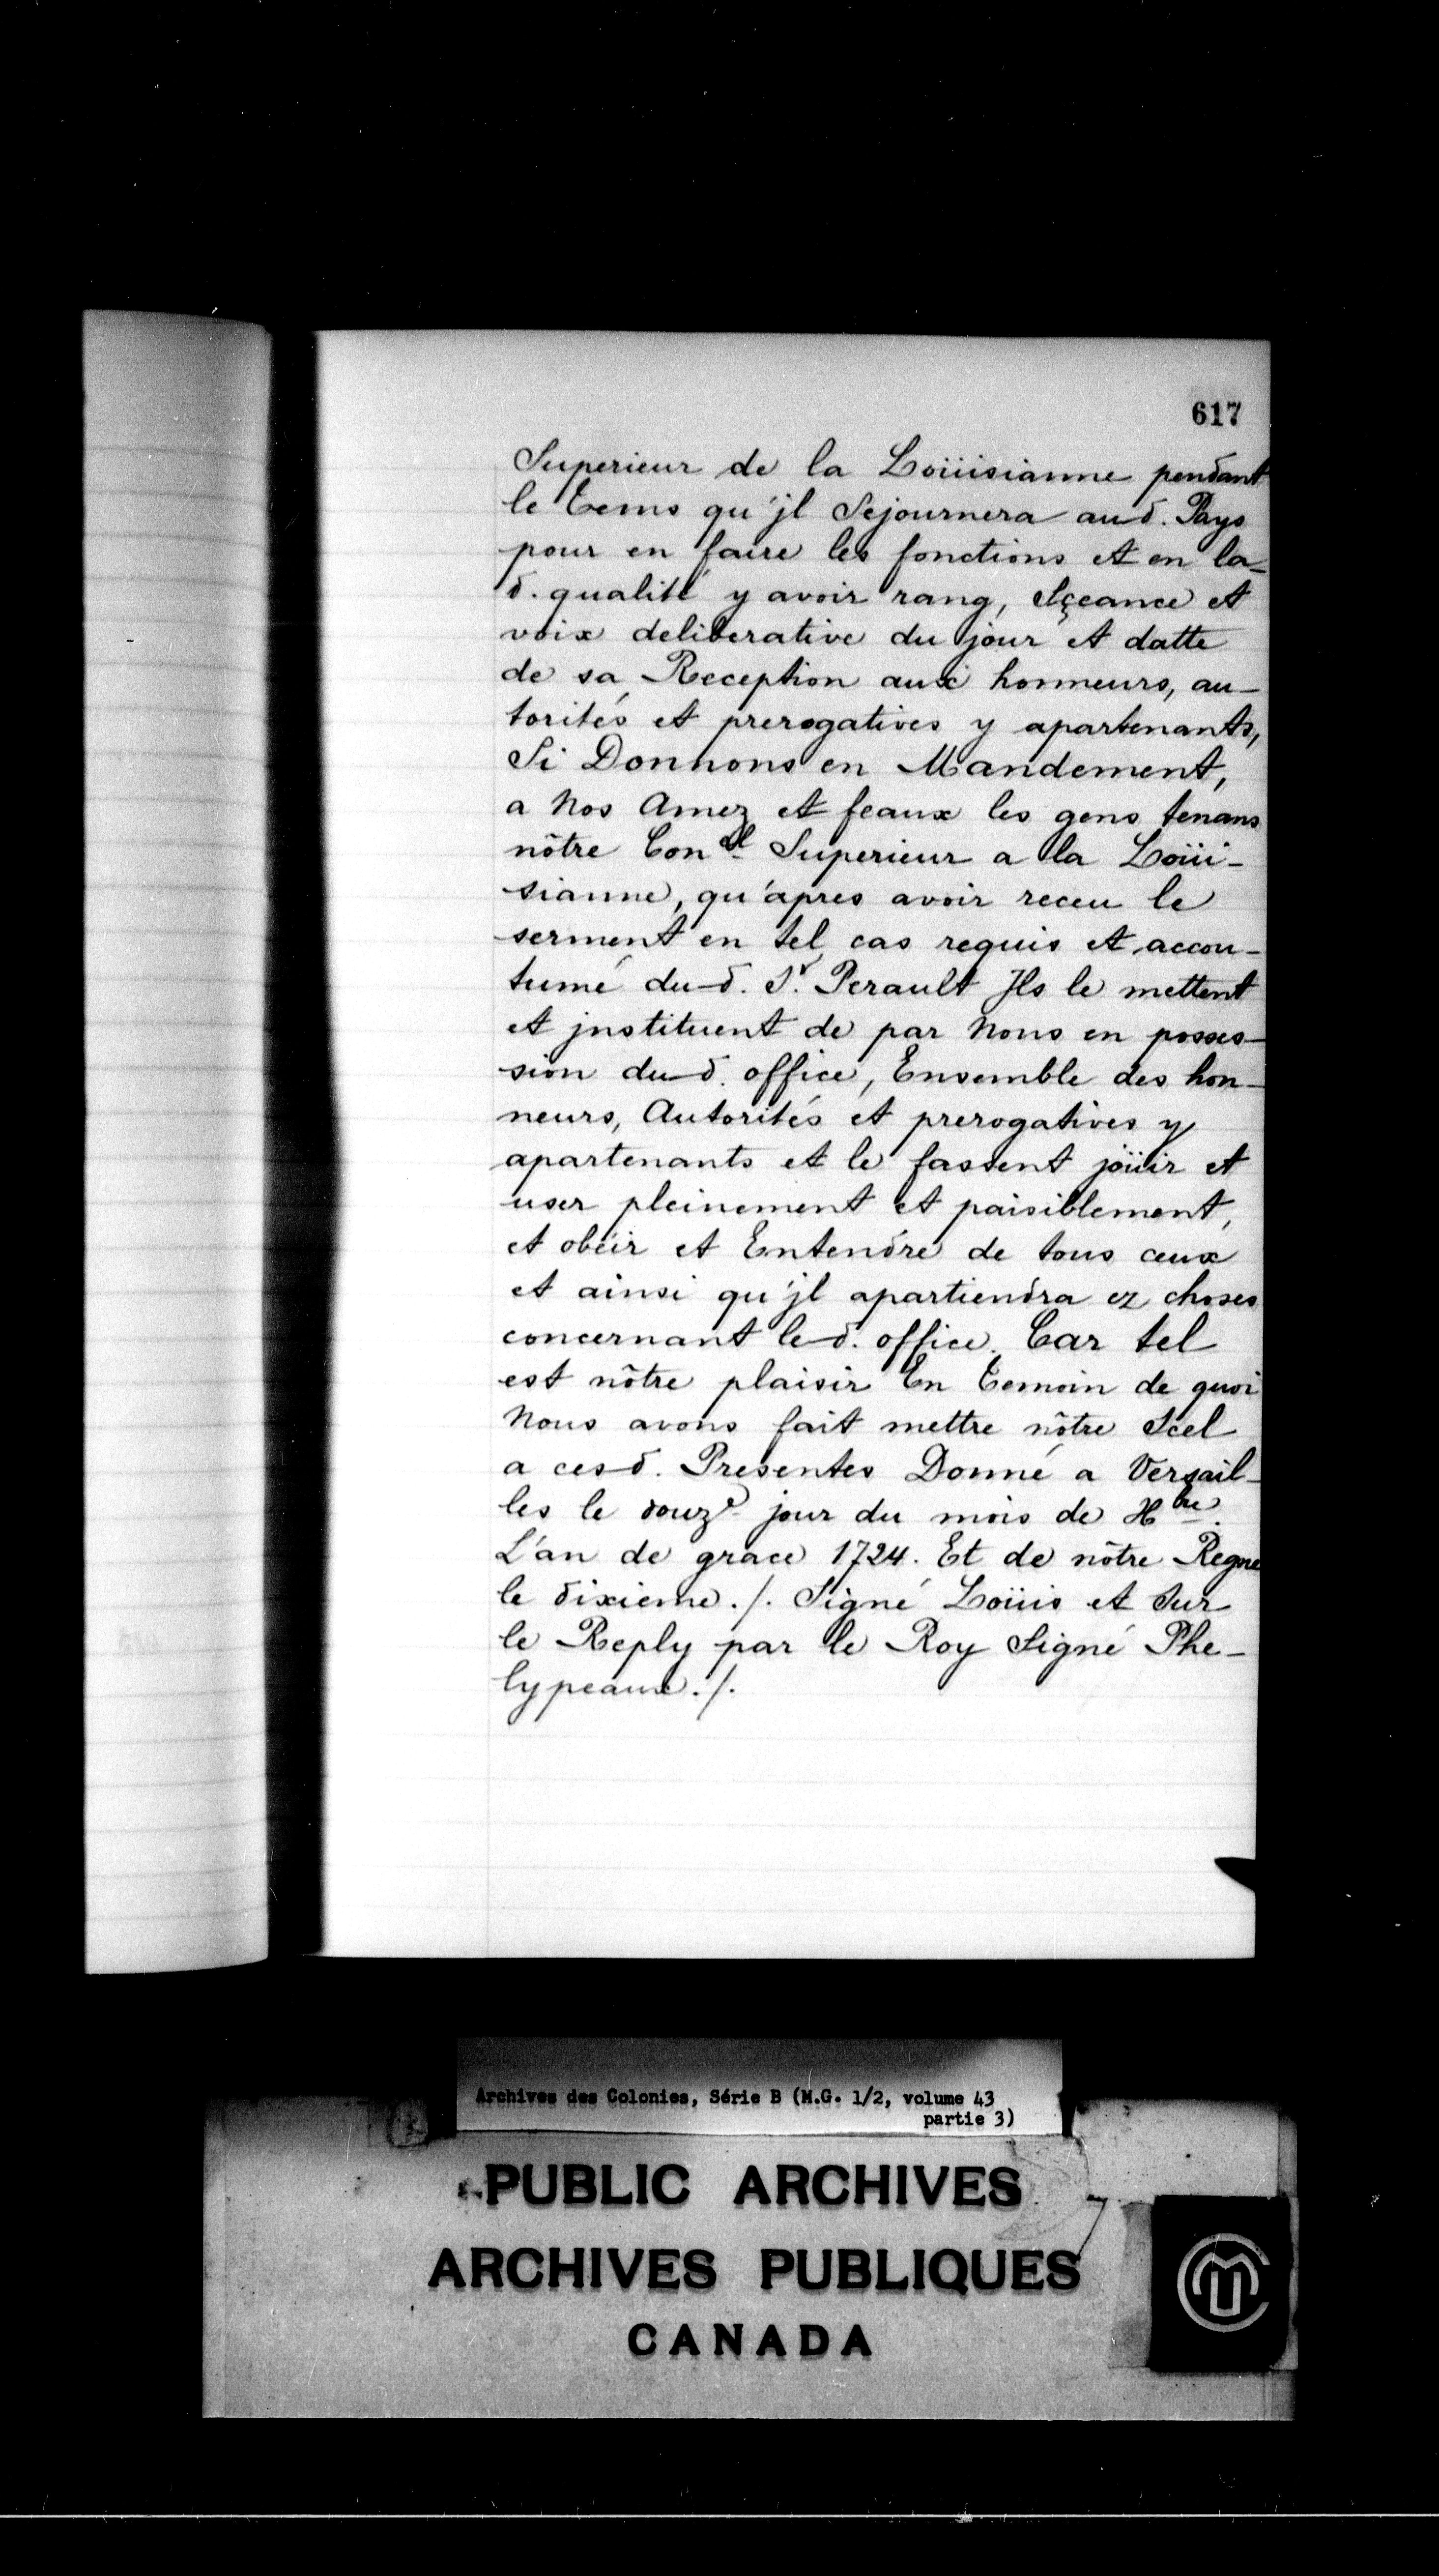 617
Superieur de la Loüisianne pendant
le tems qu'jl Sejournera aud. Pays
pour en faire les fonctions et en la-
d. qualité y avoir rang, sçeance et
voix deliberative du jour et datte
de sa Reception aux honneurs, au-
torités et prerogatives y apartenants,
Si Donnons en Mandement,
a Nos Amez et feaux les gens tenans
nôtre Con.el Superieur a la Loüi-
sianne, qu'apres avoir receu le
serment en tel cas requis et accou-
tumé dud. Sr. Perault Jls le mettent
et jnstituent de par Nous en posses-
sion dud. office, Ensemble des hon-
neurs, Autorités et prerogatives y
apartenants et le fassent joüir et
user pleinement et paisiblement,
et obéir et Entendre de tous ceux
et ainsi qu'jl apartiendra ez choses
concernant led. office. Car tel
est nôtre plaisir En temoin de quoi
Nous avons fait mettre nôtre Scel
a cesd. Presentes Donné a Versail-
les le douze jour du mois de Xbre.
L'an de grace 1724. Et de nôtre Regne
le dixieme ./. Signé Loüis et Sur
le Reply par le Roy Signé Phe-
lypeaux ./.
Archives des Colonies, Série B (M.G. 1/2, volume 43
partie 3)
PUBLIC ARCHIVES
ARCHIVES PUBLIQUES
CANADA